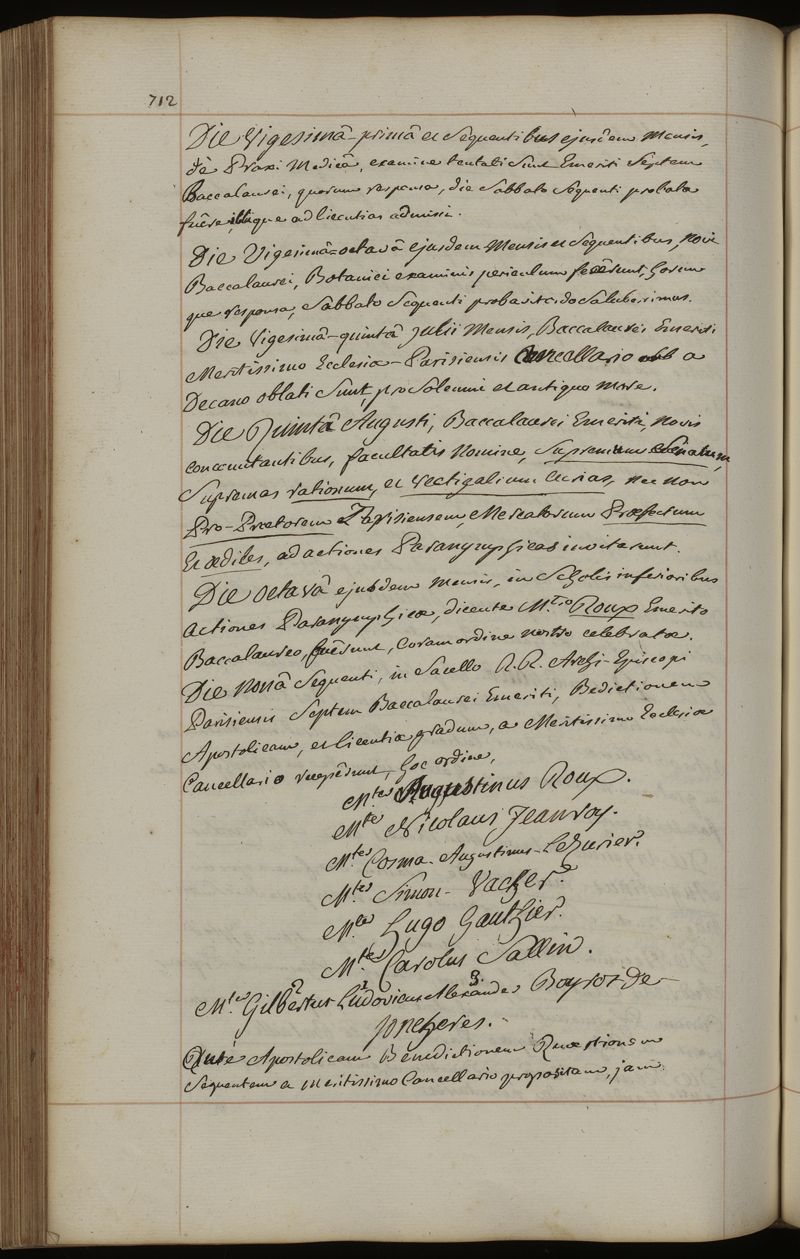 712
Die Vigesimâ-primâ et sequentibus ejusdem Mensis,
de Praxi Medicâ, examine tentati sunt Emeriti Septem
Baccalaurei, quorum responsa, die Sabbato sequenti probata
fuêre, illique ad licentias admissi.
Die Vigesimâ-octavâ ejusdem Mensis et Sequentibus, novi
Baccalaurei, Botanici examinis periculum fecêrunt, horum
que responsa, Sabbato Sequenti probavit ordo Saluberrimus.
Die Vigesimâ-quintâ Julii Mensis, Baccalaurei Emeriti
Meritissimo Ecclesiæ-Parisiensis Cancellario a
Decano oblati Sunt, pro Solemni et antiquo more.
Die Quintâ Augusti, Baccalaurei Emeriti, novis
concomitantibus, facultatis Nomine, Supremum Senatum,
Supremas rationum, et Vectigalium Curias, nec non
Pro-Prætorem Parisiensem, Mercatorum Præfectum
Et ædiles, ad actiones Paranymphicas invitarunt.
Die octavâ ejusdem mensis, in Scholis inferioribus
Actiones Paranymphicæ, dicente M.tro Roux Emerito
Baccalaureo, fuêrunt, Coram ordine nostro celebratæ.
Die Nonâ Sequenti, in Sacello R.R. Archi-Episcopi
Parisiensis Septem Baccalaurei Emeriti, Bedictionem
Apostolicam, et licentiæ gradum, a Meritissimo Ecclesiæ
Cancellario recepêrunt, hoc ordine,
M.ter Augustinus Roux.
M.ter Nicolaus Jeanroy.
M.ter Cosma-Augustinus-Lezurier.
M.ter Simon-Vacher.
M.ter Hugo Gauthier.
M.ter Carolus Sallin.
M.ter Gilbertus 2 Ludovicus 1 Alexander 3. Boyrot-De-
Joncheres.
Ante Apostolicam Benedictionem Quæstionem
Sequentem a meritissimo Cancellario propositam, jam